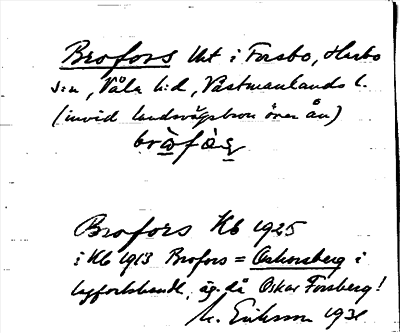 Brofors lht i Forsbo, Harbo
s:n, Våla h:d, Västmanlands l.
(invid landsvägsbron över ån)
bròfàs̩
Brofors Kb 1925
i Kb 1913 Brofors = Oskarsberg i
lagfartsbandk, äg. då Oskar Forsberg!
M. Eriksson 1931